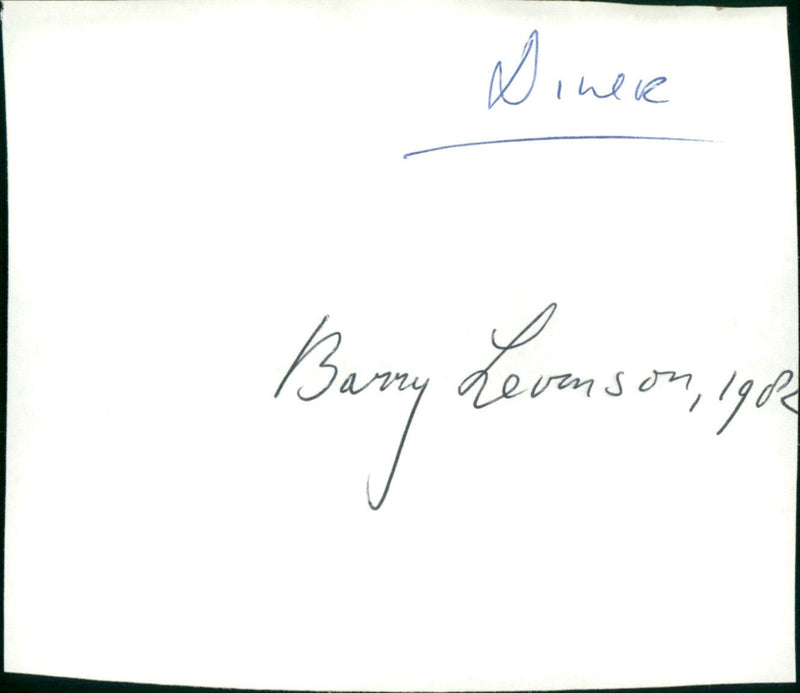 Diner
Barry Levinson, 198